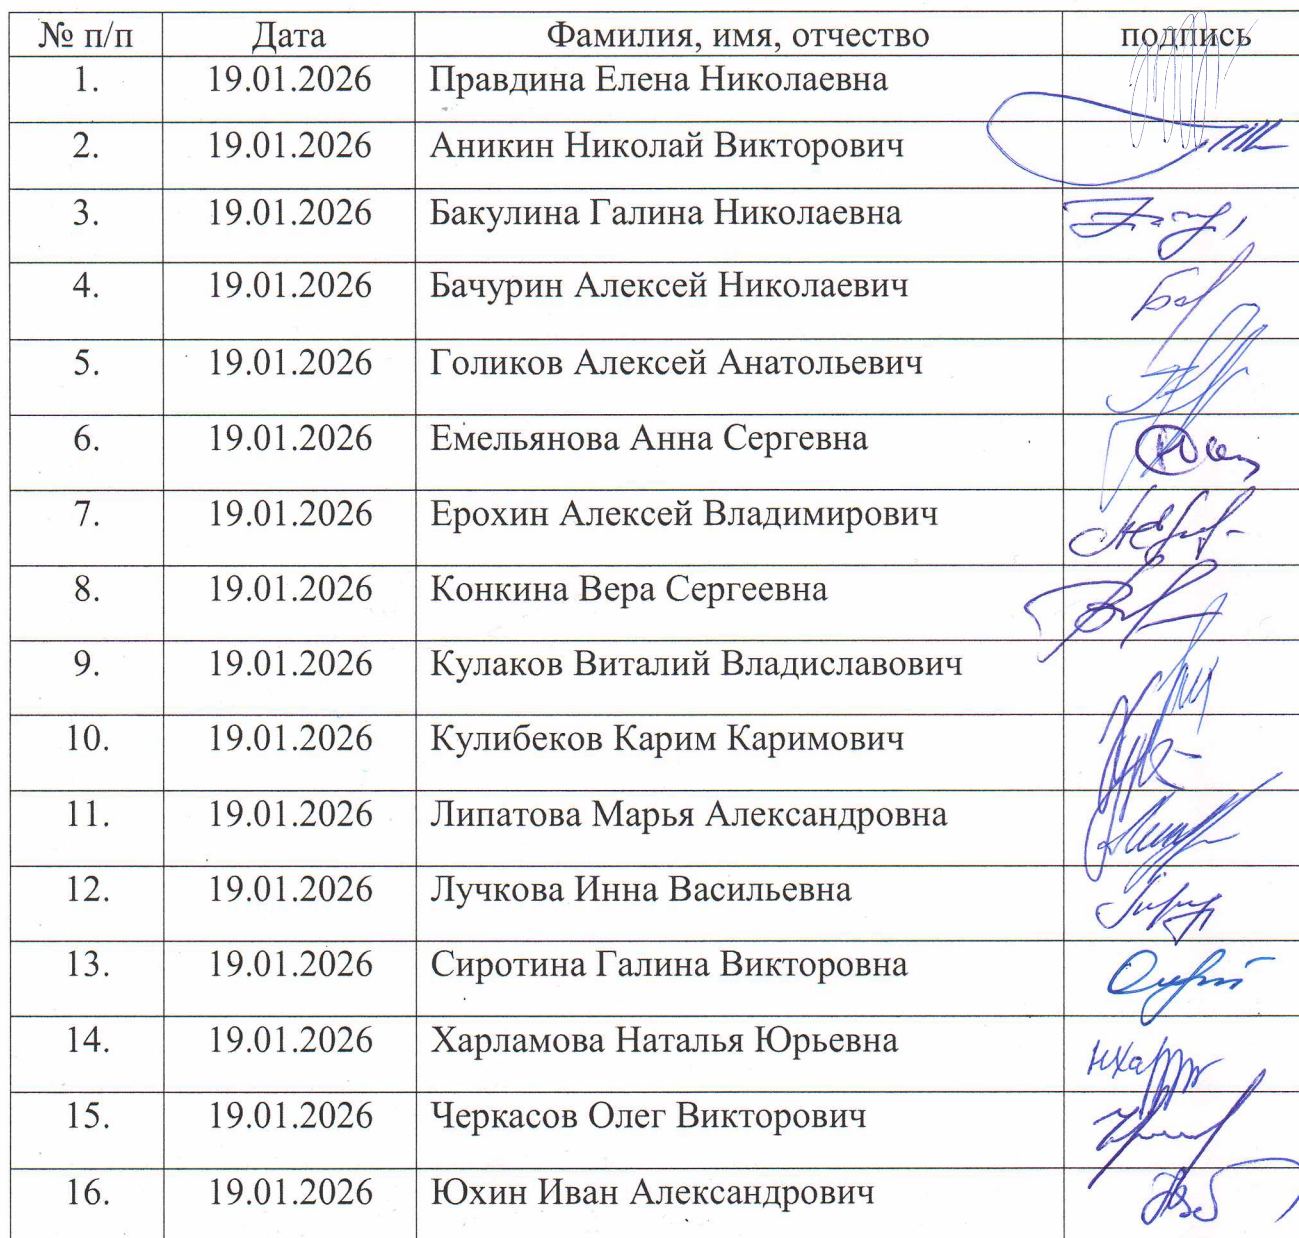 № п/п Дата Фамилия, имя, отчество подпись
1. 19.01.2026 Правдина Елена Николаевна
2. 19.01.2026 Аникин Николай Викторович
3. 19.01.2026 Бакулина Галина Николаевна
4. 19.01.2026 Бачурин Алексей Николаевич
5. 19.01.2026 Голиков Алексей Анатольевич
6. 19.01.2026 Емельянова Анна Сергевна
7. 19.01.2026 Ерохин Алексей Владимирович
8. 19.01.2026 Конкина Вера Сергеевна
9. 19.01.2026 Кулаков Виталий Владиславович
10. 19.01.2026 Кулибеков Карим Каримович
11. 19.01.2026 Липатова Марья Александровна
12. 19.01.2026 Лучкова Инна Васильевна
13. 19.01.2026 Сиротина Галина Викторовна
14. 19.01.2026 Харламова Наталья Юрьевна
15. 19.01.2026 Черкасов Олег Викторович
16. 19.01.2026 Юхин Иван Александрович